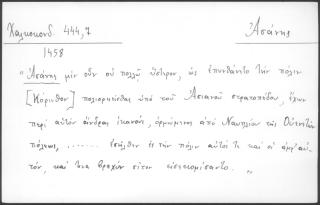 Χαλκοκονδ. 444, 7
Ἀσάνης
1458
" Ἀσάνης μὲν οὖν οὐ πολλῷ ὕστερον, ὡς ἐπυνθάνετο τὴν πόλιν
[Κόρινθον] πολιορκεῖσθαι ὑπὸ τοῦ Ἀσιανοῦ στρατοπέδου, ἔχων
περὶ αὐτὸν ἄνδρας ἱκανούς, ὁρμώμενος ἀπὸ Ναυπλίου τῆς Οὐενετῶν
πόλεως, ....... ἐσῆλθεν ἐς τὴν πόλιν αὐτός τε καὶ οἱ ἀμφ' αὐ-
τόν, καὶ τινα βραχὺν σῖτον εἰσεκομίσαντο. "